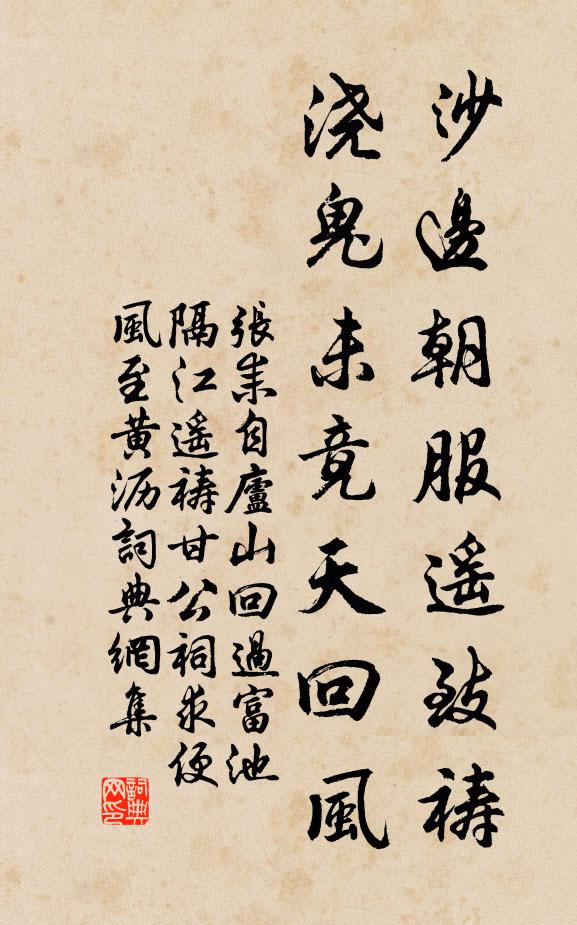 沙邊朝服遥致禱
浇鬼未竟天回風
張耒自廬山回過富池
隔江遥禱甘公祠求便
風至黄沥詞典網集
詞典网印